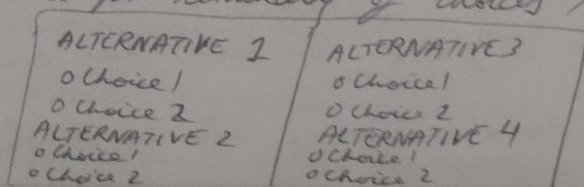 of choices
ALTERNATIVE 1
o Choice 1
o Choice 2
ALTERNATIVE 2
o Choice 1
o Choice 2
ALTERNATIVE 3
o Choice 1
o Choice 2
ALTERNATIVE 4
o Choice 1
o Choice 2